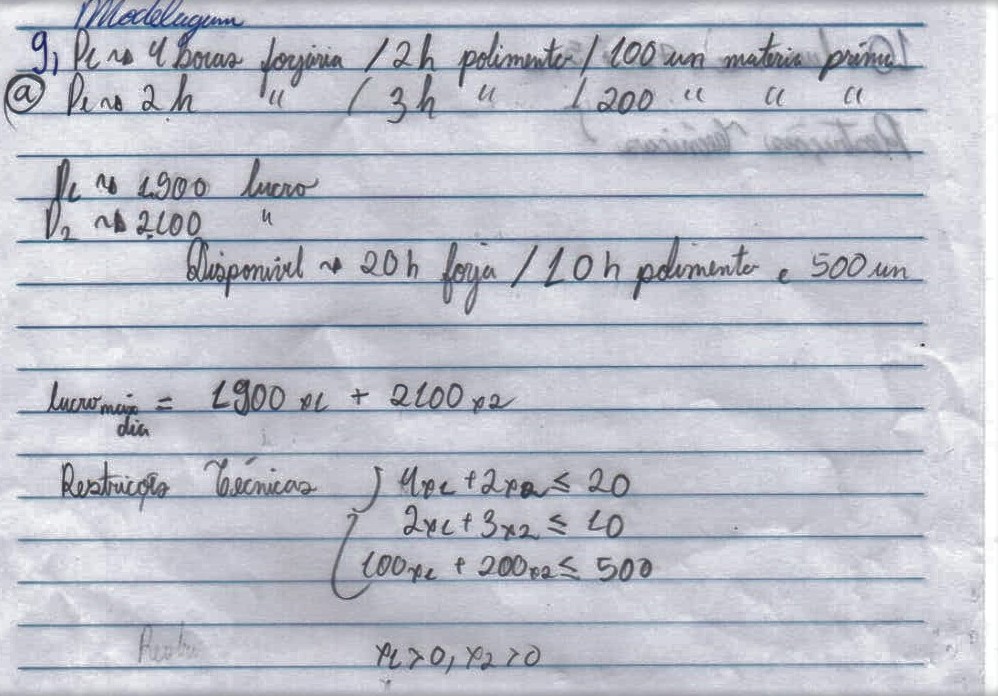 Modelagem
9, P1 ~> 4 horas forjaria / 2h polimento / 100 un materia prima
(a) P1 ~> 2h " / 3h " / 200 " " "
P1 ~> 1.900 lucro
P2 ~> 2.100 "
Disponivel ~> 20h forja / 10h polimento e 500 un
lucro max dia = 1900 x1 + 2100 x2
Restrições Técnicas { 4x1 + 2x2 ≤ 20
2x1 + 3x2 ≤ 10
100x1 + 200x2 ≤ 500
x1 > 0, x2 > 0